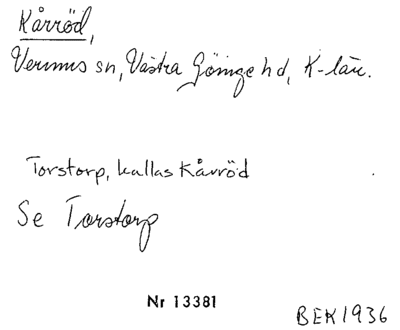 Kårröd,
Verums sn, Västra Göinge hd, K-län.
Torstorp, kallas Kårröd
Se Torstorp
Nr 13381
BEK 1936